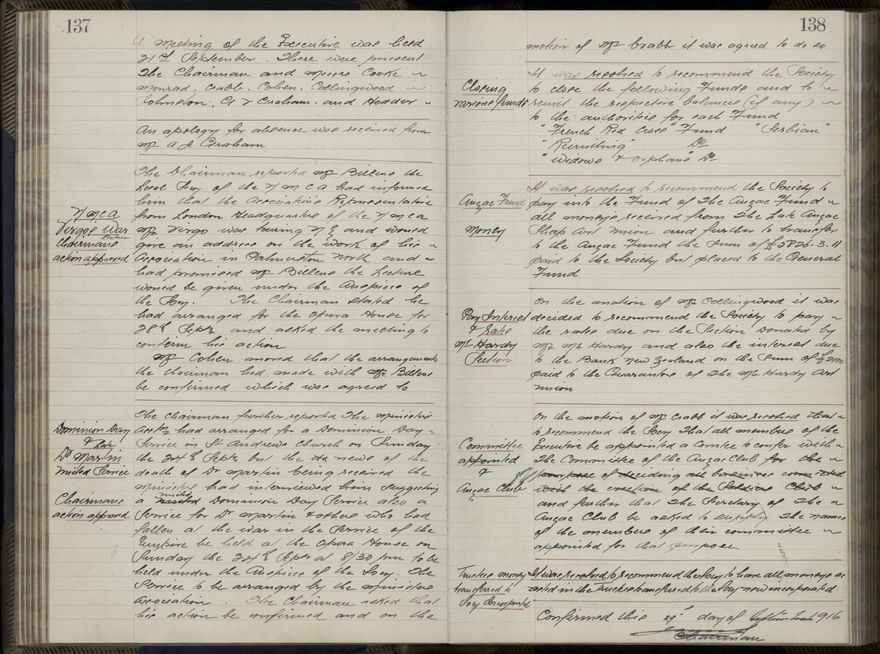 137
A meeting of the Executive was held
21st September. There were present
The Chairman and Messrs Cooke
Monrad, Crabb, Cohen, Collingwood
Johnston, and Hodder
An apology for absence was received from
Mr A J Graham
YMCA
Virgo's War
Lecture
Chairman's
action approved
The Chairman reported Mr Billens the
Local Secy of the Y M C A had informed
him that the Association's Representative
from London Headquarters of the Y M C A
Mr Virgo was touring N Z and would
give an address on the work of his
Association in Palmerston North and
had promised Mr Billens the Lecture
would be given under the Auspices of
the Socy. The Chairman stated he
had arranged for the Opera House for
28th Septr and asked the meeting to
confirm his action
Mr Cohen moved that the arrangements
the Chairman had made with Mr Billens
be confirmed which was agreed to
Dominion Day
& Late
Dr Martin
United Service
Chairman's
action approved
The Chairman further reported The Ministers
Assn had arranged for a Dominion Day
Service in St Andrews Church on Sunday
the 24th Septr but the news of the
death of Dr Martin being received the
Ministers had interviewed him suggesting
a united Dominion Day Service also a
Service for Dr Martin & others who had
fallen at the war in the Service of the
Empire be held at the Opera House on
Sunday the 24th Septr at 8/30 pm to be
held under the Auspices of the Socy. The
Service to be arranged by the Ministers
Association. The Chairman asked that
his action be confirmed and on the
138
motion of Mr Crabb it was agreed to do so
Closing
various funds
It was resolved to recommend the Society
to close the following Funds and to
remit the respective balances (if any)
to the authorities for each Fund
"French Red Cross" Fund "Serbian"
"Recruiting" Do
"Widows & Orphans" Do
Anzac Fund
Money
It was resolved to recommend the Society to
pay into the Fund of The Anzac Fund
all moneys received from The Late Anzac
Shop Art Union and further to transfer
to the Anzac Fund the sum of £3826.3.11
paid to the Society but placed to the General
Fund
Pay Interest
& rates
McHardy
Section
On the motion of Mr Collingwood it was
decided to recommend the Society to pay
the rates due on the Section donated by
Mr McHardy and also the interest due
to the Bank New Zealand on the sum of
paid to the Guarantors of The McHardy Art
Union
Committee
appointed
&
Anzac Club
On the motion of Mr Crabb it was resolved that
to recommend the Socy That all members of the
Executive be appointed a Comtee to confer with
The Committee of the Anzac Club for the
purpose of deciding all business connected
with the erection of the Soldiers Club
and further that The Secretary of The
Anzac Club be asked to supply the names
of the members of their committee
appointed for that purpose
Trustees money
transferred to
Socy Incorporated
It was resolved to recommend the Socy to have all moneys as
vested in the Trustees transferred to the Socy now incorporated
Confirmed this day of 1916
Chairman